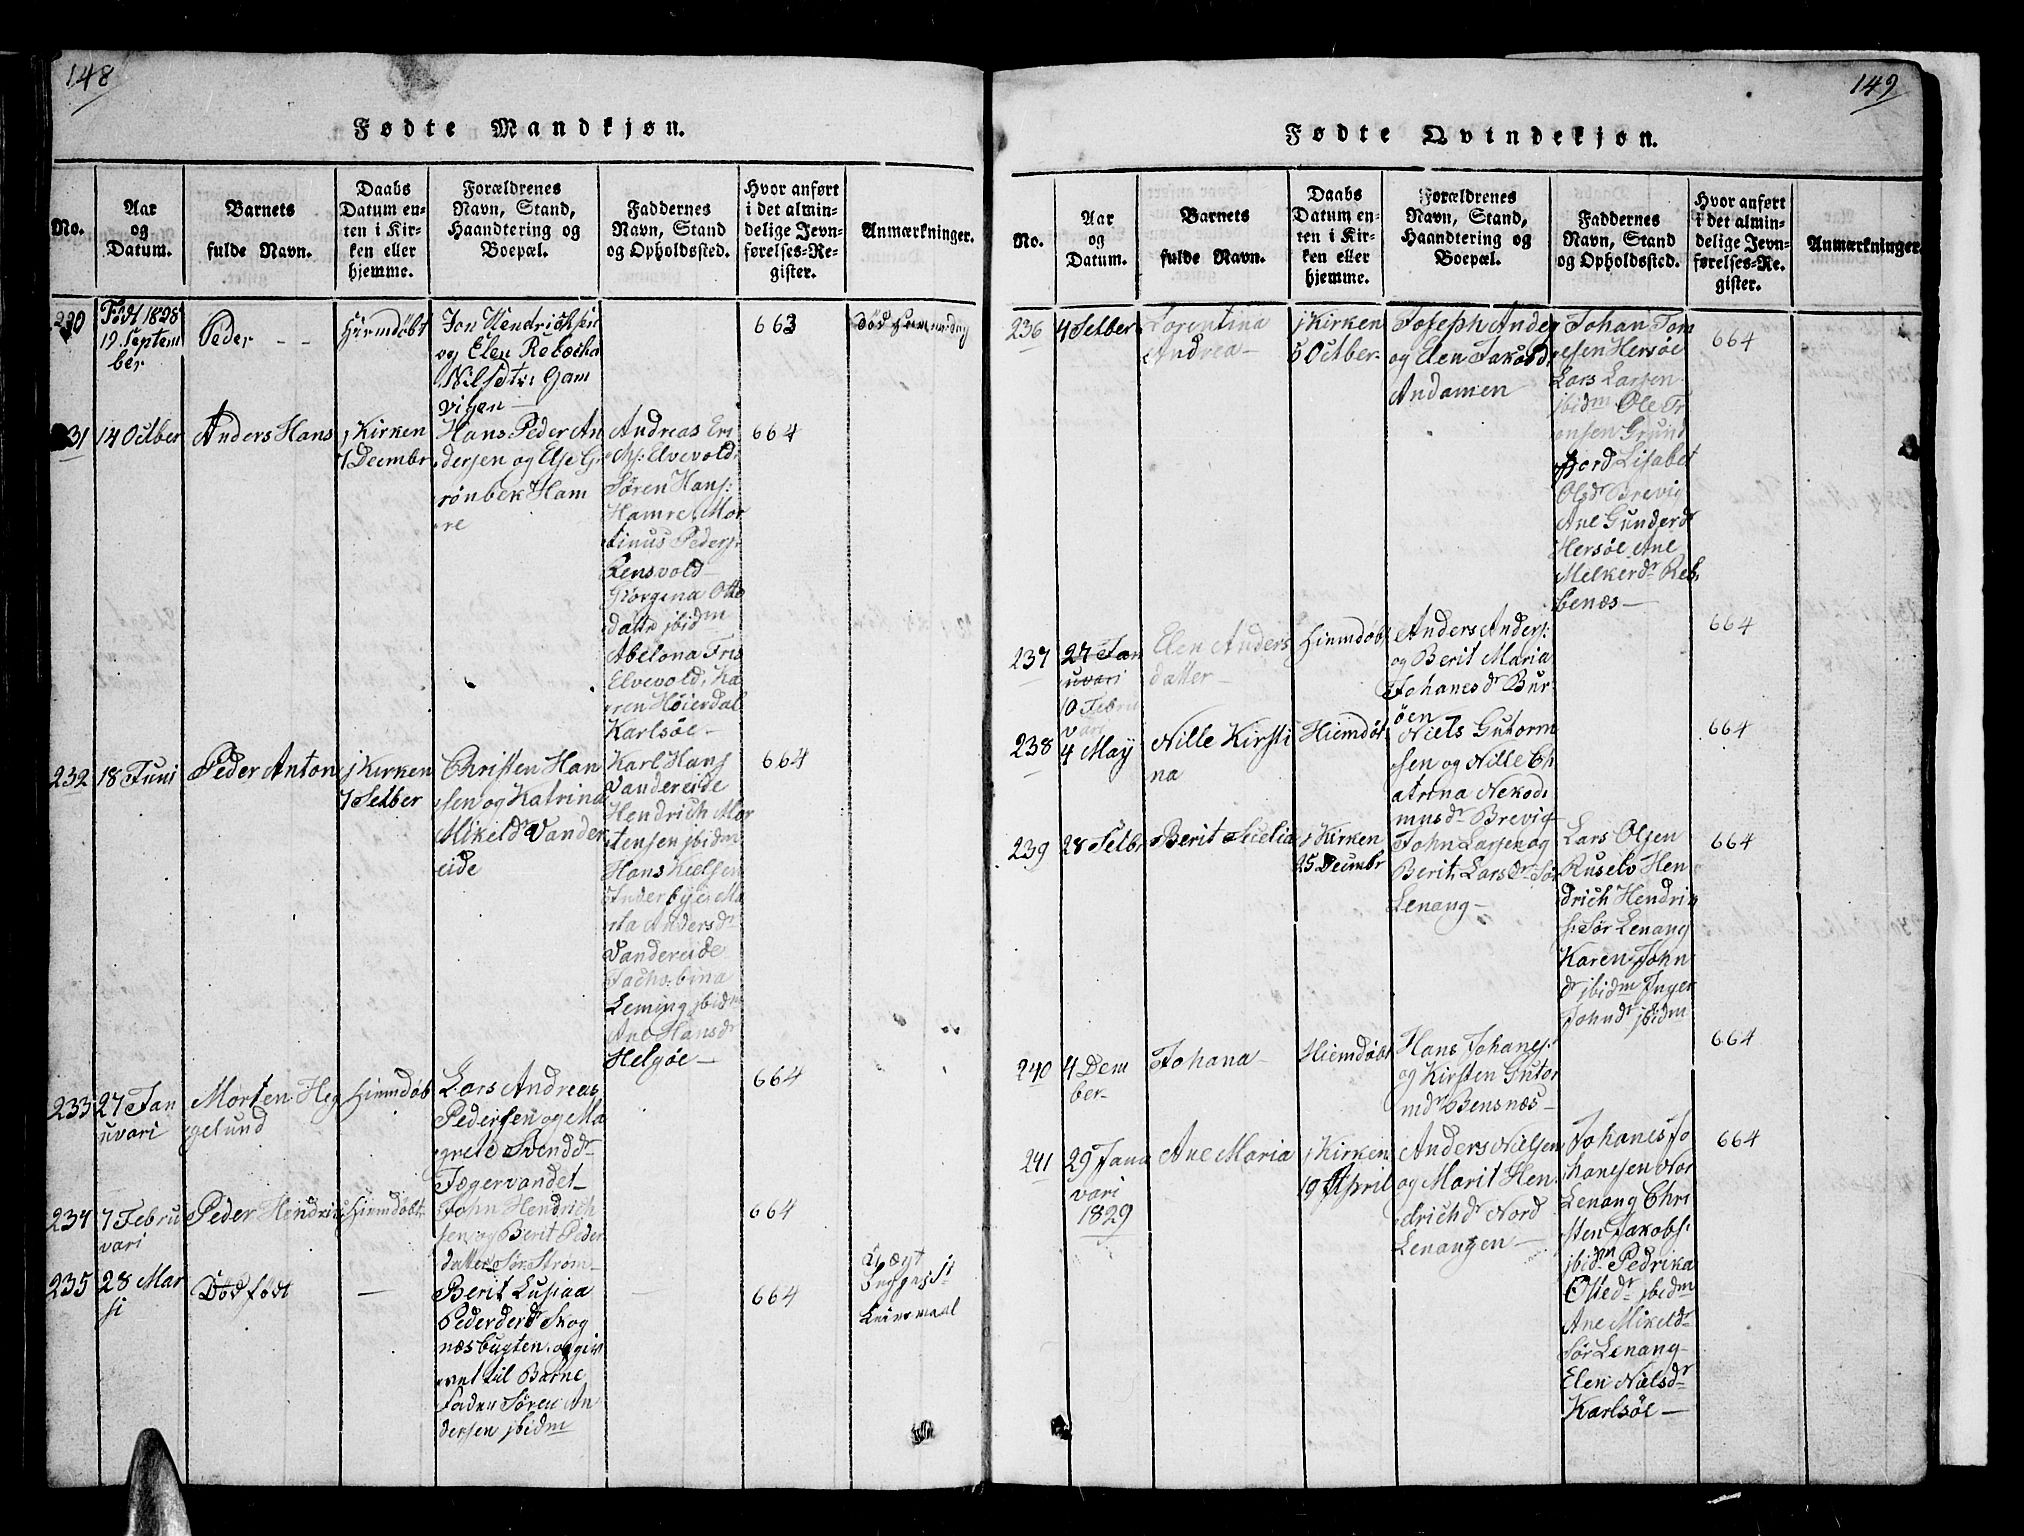 148
Fødte Mandkjøn.
No.
Aar
og
Datum.
Barnets
fulde Navn.
Daabs
Datum en-
ten i Kir-
ken eller
hjemme.
Forældrenes
Navn, Stand,
Haandtering og
Boepæl.
Faddernes
Navn, Stand
og Opholdssted.
Hvor anført
i det almin-
delige Jevn-
førelses-Re-
gister.
Anmærkninger.
230
Født 1828
19. Septem
ber
Peder
Hiemdøbt
Jon Hendrichsen
og Elen Rebecha
Nilsdtr: Gam
vigen
663
231
14 Octber
Anders Hans
j Kirken
7 Decmbr
Hans Peder An
dersen og Else G
rønbek Ham
re
Andreas Eri
chs: Elvevold
Søren Hans:
Hamre, Mor
tinus Peders:
Lensvold
Giorgena Otte
datte jbidm
Abelona Fris
Elvevold, Ka
ren Høierdal
Karlsøe
664
232
18 Juni
Peder Anton
j Kirken
7 Setber
Christen Han
sen og Katrina
Mikeldr Vander
eide
Karl Hans
Vandereide
Hendrich Mor
tensen jbidm
Hans Kielsen
Inderbye Ma
rta Andersdr
Vandereide
Jachobina
Leming jbidm
Ane Hansdr
Helgøe
664
233
27 Jan
uvari
Morten Heg
gelund
Hiemdøb
Lars Andreas
Pedersen og Ma
grete Svenddr
Jægervandet
664
234
7 Febru
vari
Peder Hendric
Hiemdøbt
John Hendrich
sen og Berit Peder
datter Sør Strøm
664
235
28 Mar
si
Død født
Berit Lusiaa
Pederderdr Skog
næsbugten, og giv
vet til Barne
Fader Søren An
dersen jbidm
664
Leiermaal
149
Fødte Qvindekjøn.
No.
Aar
og
Datum.
Barnets
fulde Navn.
Daabs
Datum en-
ten i Kir-
ken eller
hjemme.
Forældrenes
Navn, Stand,
Haandtering og
Boepæl.
Faddernes
Navn, Stand
og Opholdssted.
Hvor anført
i det almin-
delige Jevn-
førelses-Re-
gister.
Anmærkninger.
236
4 Setber
Lorentina
Andrea
j Kirken
5 Octber
Joseph Ander
og Elen Jakobd
Andamen
Johan Tom
esen Hersøe
Lars Larsen
jbidm Ole Tr
onsen Grund
fjord Lisabet
Olsdr Brevig
Ane Gunderdr
Hersøe Ane
Melkerdr Reb
benæs
664
237
27 Jan
uvari
10 Febru
vari
Elen Anders
datter
Hiemdøbt
Anders Anders:
og Berit Maria
Johanesdr Bur
øen
664
238
4 May
Nille Kirsti
na
Hiemdøbt
Niels Gutorm
sen og Nille Ch
atrina Nekodi
musdr Brevig
664
239
28 Setbr
Berit Sicelia
j Kirken
25 Decmbr
John Larsen og
Berit Larsdr Sør
Lenang
Lars Olsen
Ruselv Hen
drich Hendric
s: Sør Lenang
Karen John
dr jbidm Inger
Johndr jbidm
664
240
4 Dcm
ber
Johana
Hiemdøbt
Hans Johans:
og Kirsten Gutor
mdr Bensnæs
664
241
29 Janu
vari
1829
Ane Maria
j Kirken
19 April
Anders Nielsen
og Marit Hen
drichdr Nord
Lenangen
Johanes Jo
hansen Nor
Lenang Chri
sten Jakobs:
jbidm Pedrika
Ottedr jbidm
Ane Mikeldr
Sør Lenang
Elen Nielsdr
Karlsøe
664